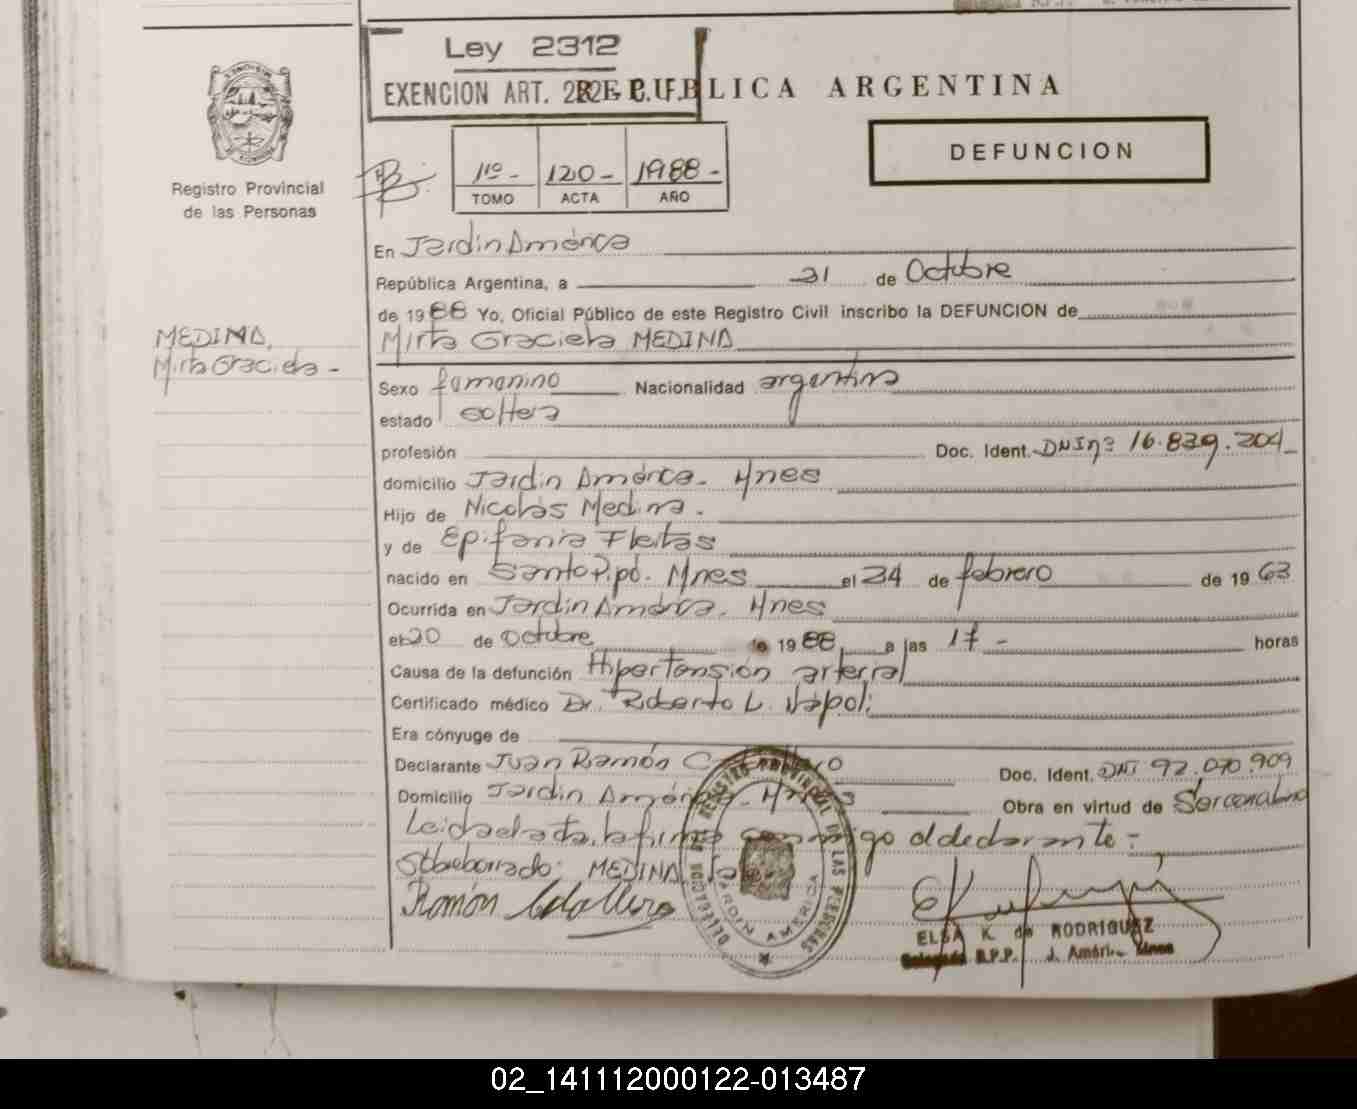 Ley 2312
EXENCION ART. 22
REPUBLICA ARGENTINA
DEFUNCION
Registro Provincial
de las Personas
1º - 120 - 1988 -
TOMO ACTA AÑO
En Jardin América
República Argentina, a 21 de Octubre
de 1988 Yo, Oficial Público de este Registro Civil inscribo la DEFUNCION de
Mirta Graciela MEDINA
MEDINA,
Mirta Graciela -
Sexo femenino Nacionalidad argentina
estado soltera
profesión Doc. Ident. DNI nº 16.839.204
domicilio Jardin América - Mnes
Hijo de Nicolás Medina.
y de Epifania Fleitas
nacido en Santo Pipó. Mnes el 24 de febrero de 1963
Ocurrida en Jardin América. Mnes
el 20 de Octubre de 1988 a las 17 - horas
Causa de la defunción Hipertensión arterial
Certificado médico Dr. Roberto L. Nápoli
Era cónyuge de
Declarante Juan Ramón Doc. Ident. DNI 92.070.909
Domicilio Jardin América - Mnes Obra en virtud de
Leida el acta, la firma conmigo el declarante: -
Sobreborrado: MEDINA
Ramón
DELEGACION DEL REGISTRO PROVINCIAL DE LAS PERSONAS
JARDIN AMERICA
ELSA K. de RODRIGUEZ
Delegada R.P.P. J. América Mnes
02_141112000122-013487